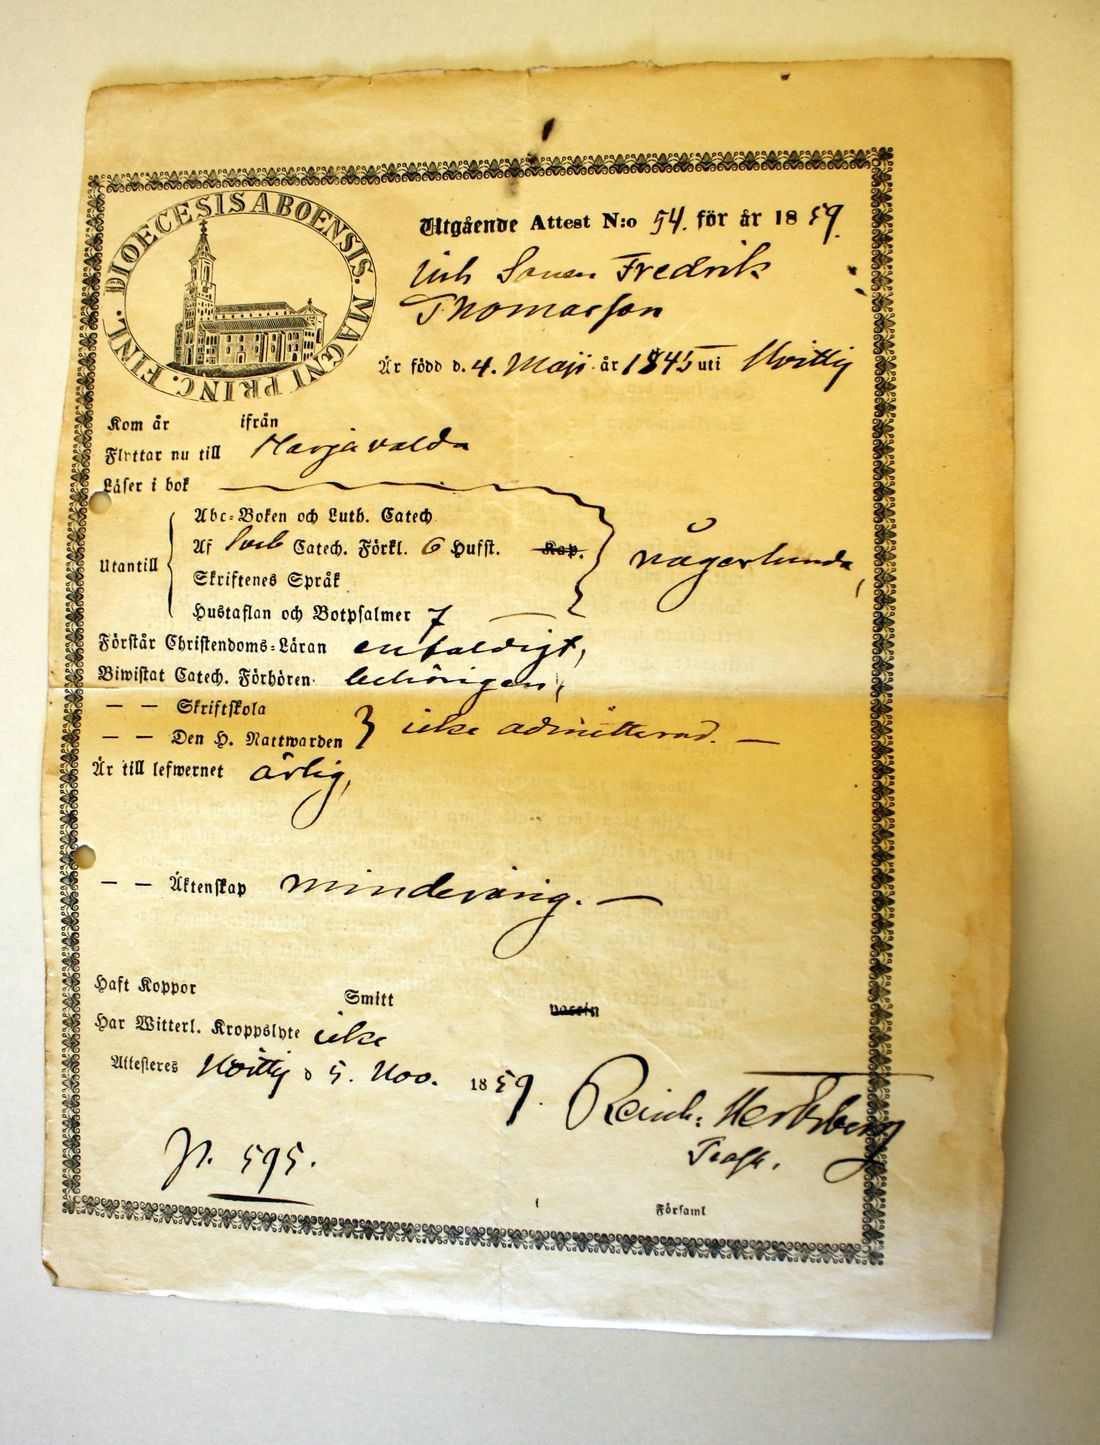 DIOECESIS ABOENSIS. MAGNI PRINC. FINL.
Utgående Attest N:o 54. för år 1859.
Fredrik
Thomasson
Är född d. 4. Maji år 1845 uti Hvittis
Kom år ifrån
Flyttar nu till Harjavalda
Läser i bok
Utantill
Abc-Boken och Luth. Catech
Af Catech. Förkl. 6 Hufst. Kap.
Skriftenes Språk
Hustaflan och Botpsalmer 7
någorlunda,
Förstår Christendoms-Läran enfaldigt,
Biwistat Catech. Förhören behörigen,
— — Skriftskola
— — Den H. Nattwarden icke admitterad. —
Är till lefwernet ärlig,
— — Äktenskap minderårig. —
Haft Koppor Smitt vaccin
Har Witterl. Kroppslyte icke
Attesteres Hvittis d 5. Nov. 1859.
Reinh: Hertzberg
p. 595.
Församl